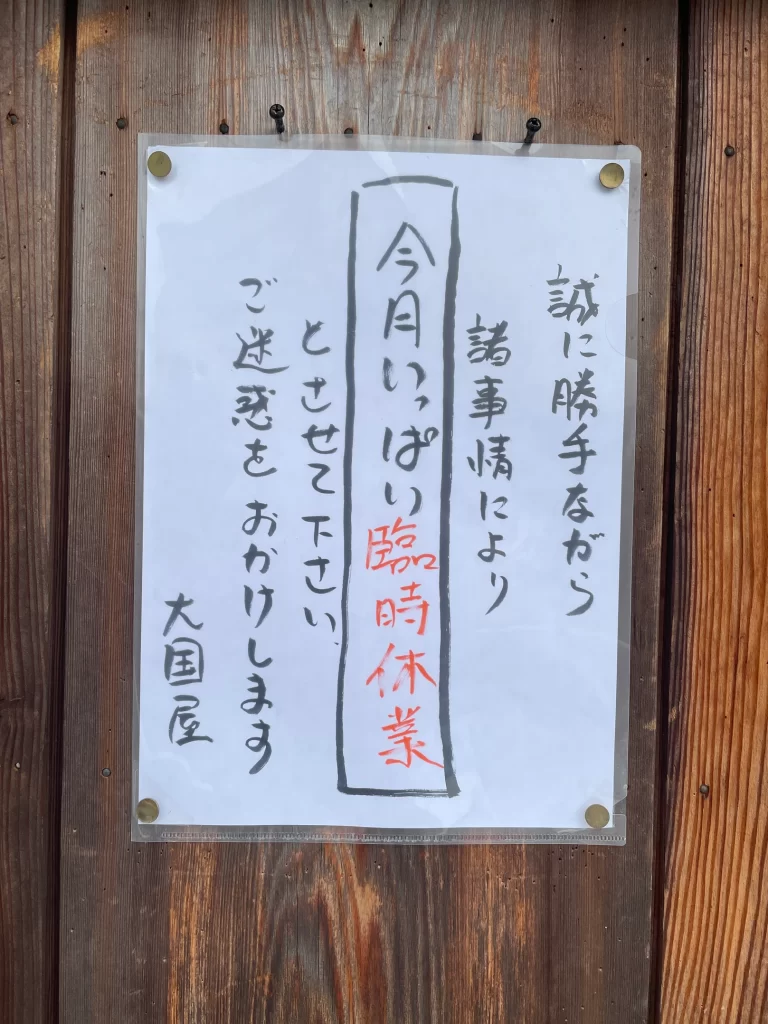 誠に勝手ながら
諸事情により
今月いっぱい臨時休業
とさせて下さい、
ご迷惑をおかけします
大国屋